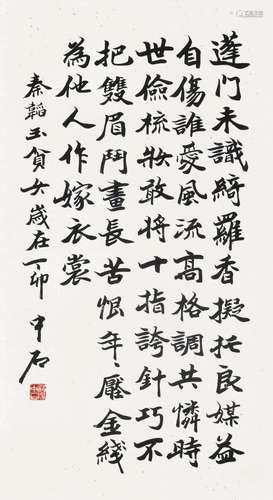 蓬门未識綺羅香擬托良媒益
自傷誰愛風流高格調共憐時
世儉梳妝敢將十指誇針巧不
把雙眉鬥畫長苦恨年〻壓金綫
為他人作嫁衣裳
秦韜玉貧女歲在丁卯 中石